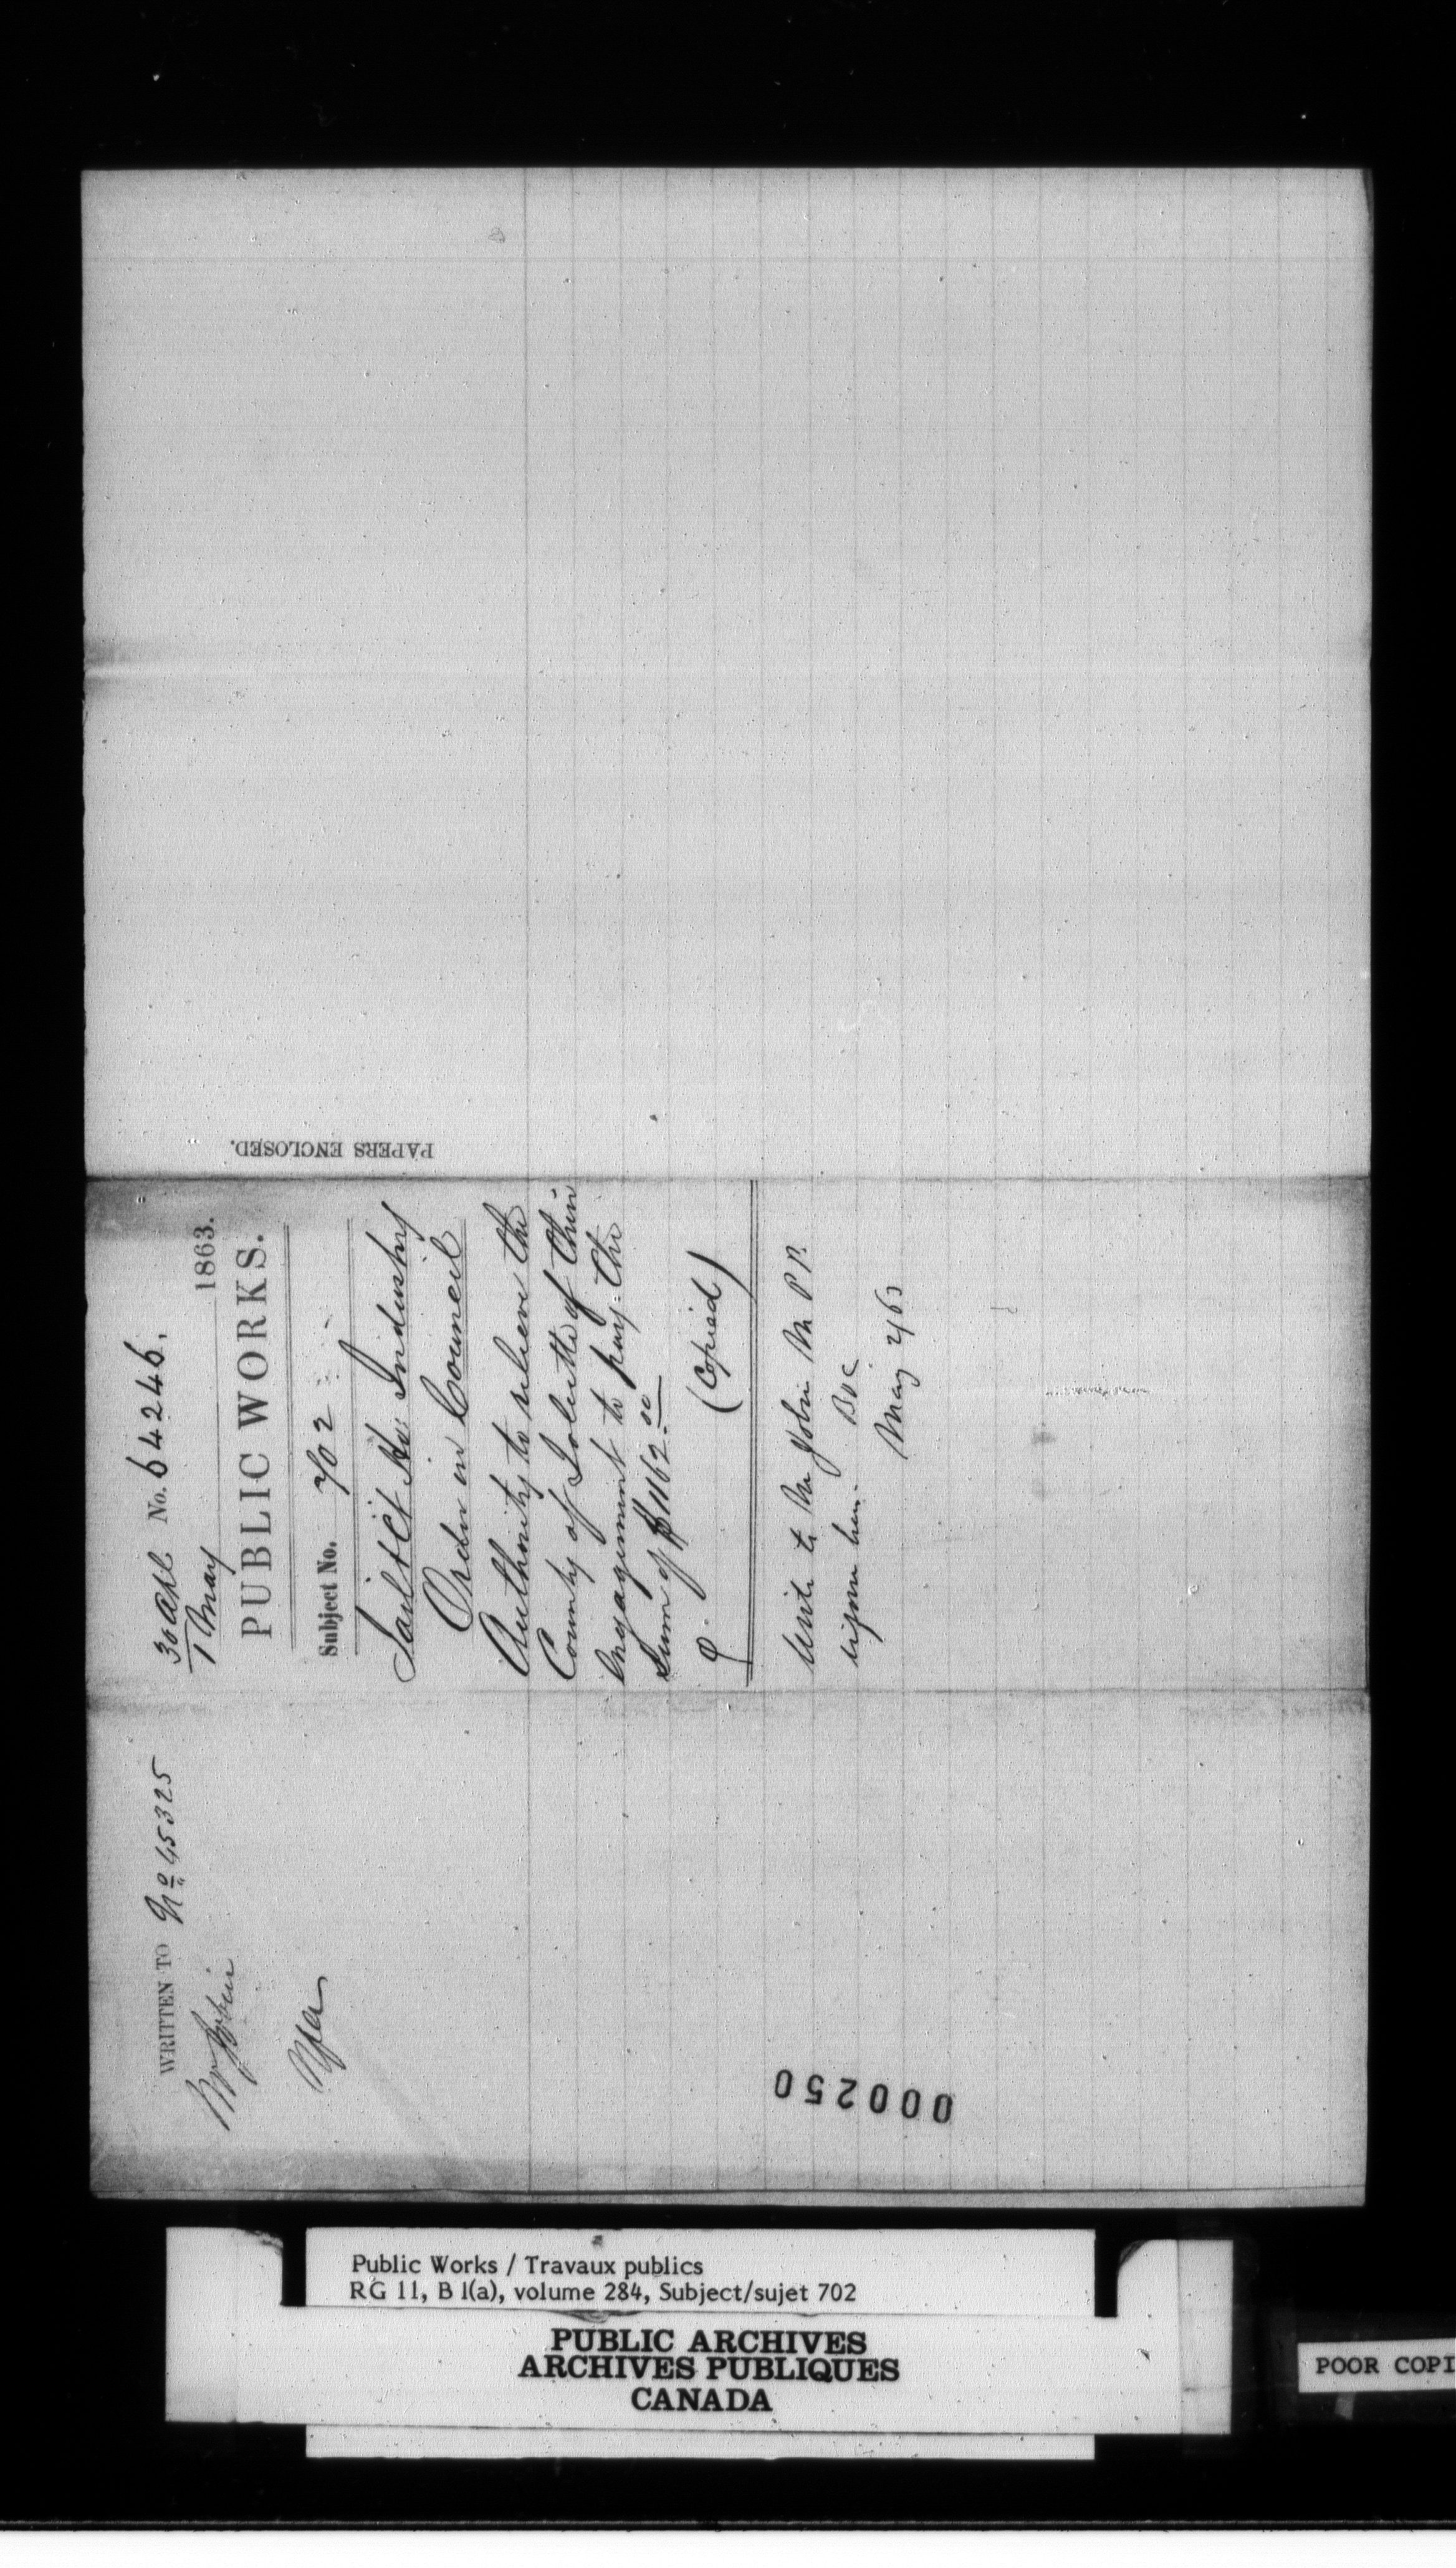 WRITTEN TO No 45325
Mr Jobin
30 Apl No. 64246.
1 May 1863.
PUBLIC WORKS.
Subject No. 702
Industry
Order in Council
Authority to relieve the
County of Joliette of their
engagement to pay the
Sum of $1162.00
(Copied)
Write to Mr Jobin M P P.
May 2/63
PAPERS ENCLOSED.
000250
Public Works / Travaux publics
RG 11, B 1(a), volume 284, Subject/sujet 702
PUBLIC ARCHIVES
ARCHIVES PUBLIQUES
CANADA
POOR COPI